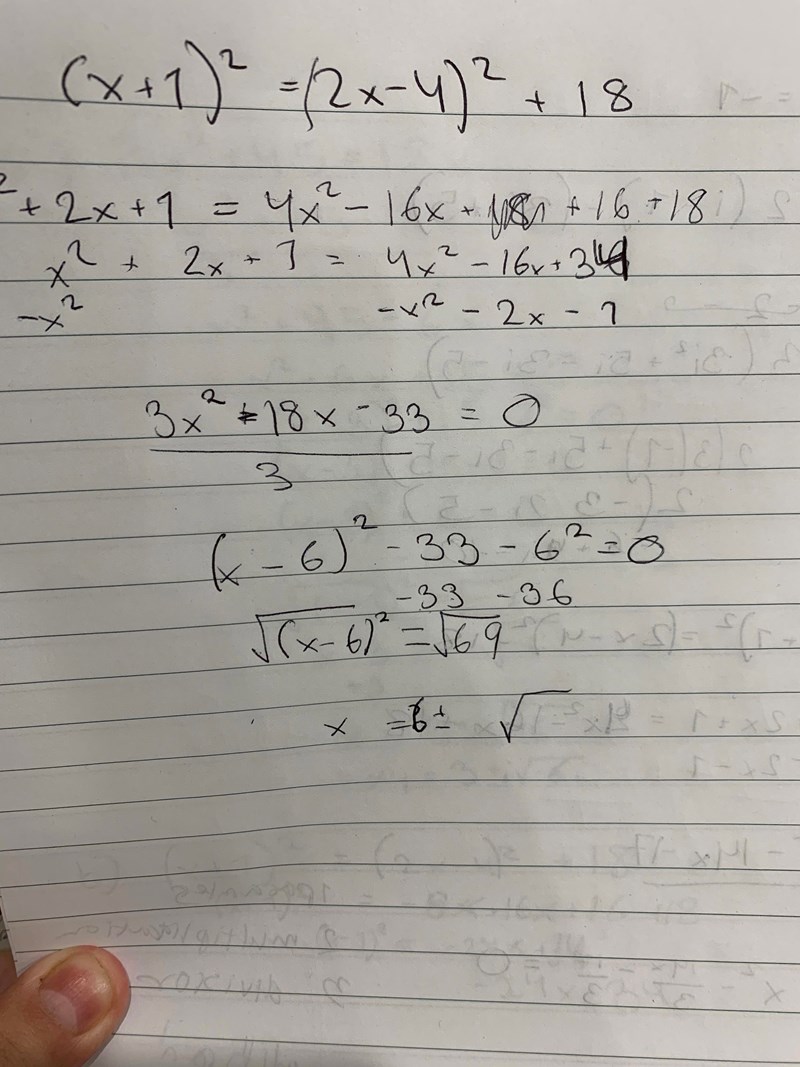 (x+1)² = (2x-4)² + 18
² + 2x + 1 = 4x² - 16x + + 16 + 18
x² + 2x + 1 = 4x² - 16x + 34
-x² -x² - 2x - 1
3x² - 18x - 33 = 0
3
(x - 6)² - 33 - 6² = 0
-33 - 36
√(x-6)² = √69
x = 6 ± √